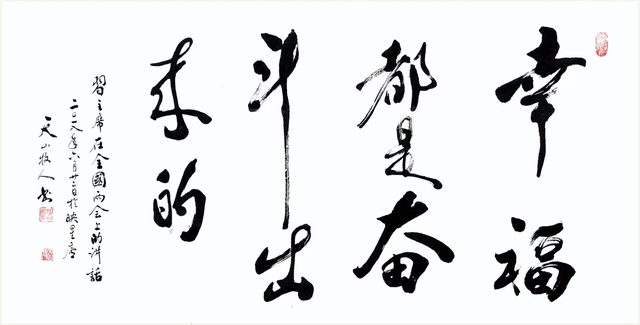 幸福
都是奋
斗出
来的
習主席在全國両会上的讲話
二〇一八年六月廿二日於映星廬
天山牧人书